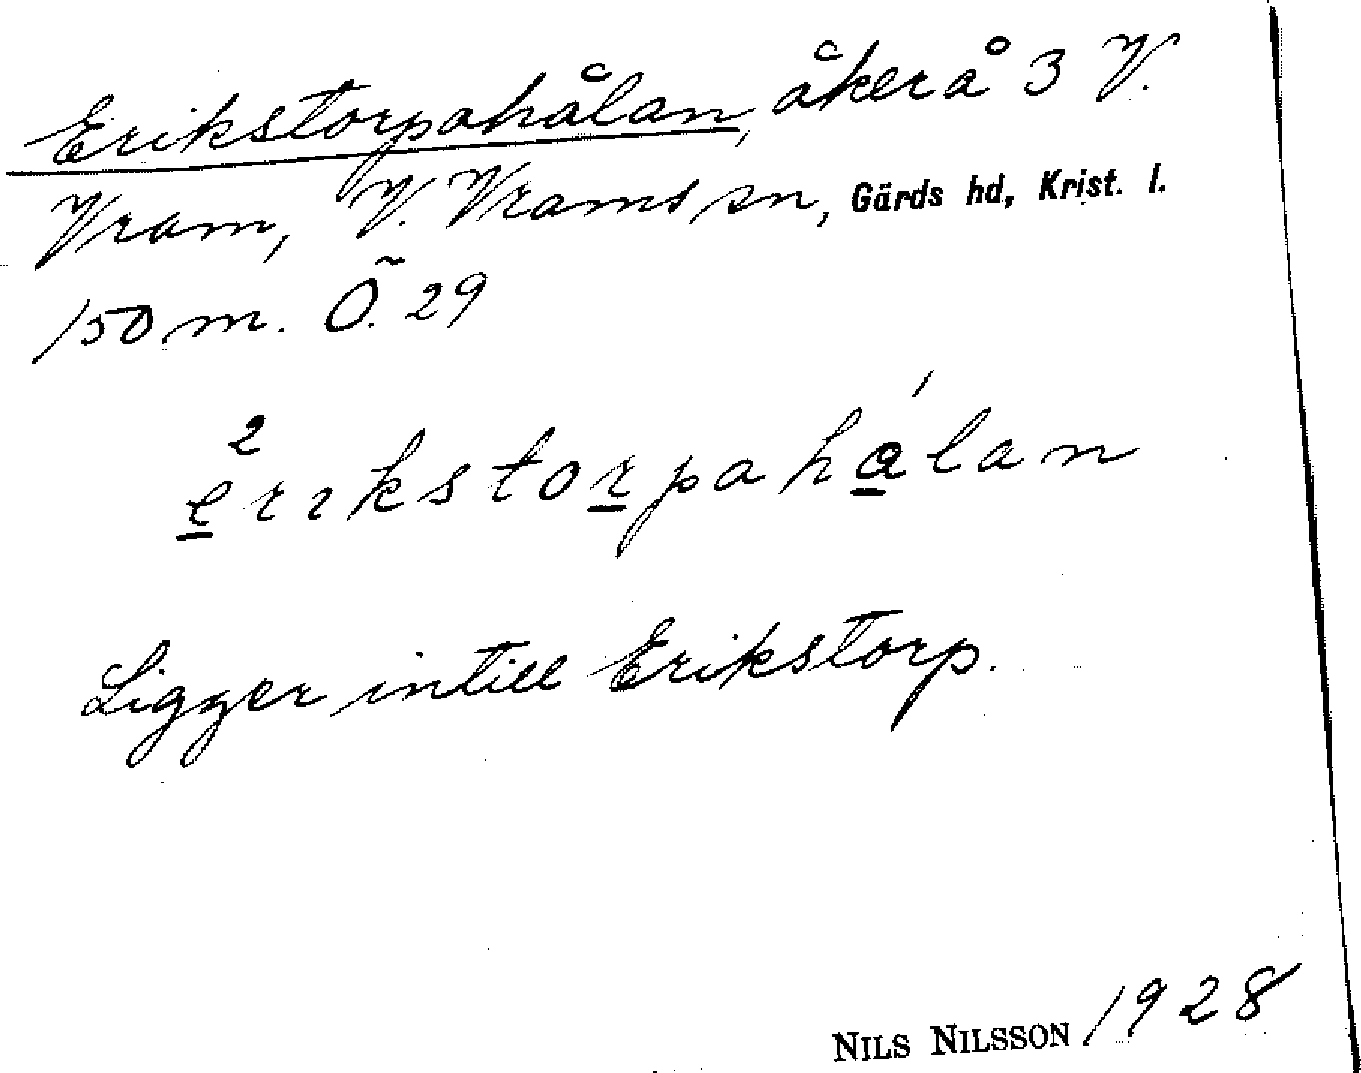 Erikstorpahålan, åker å 3 V.
Vram, V. Vrams sn, Gärds hd, Krist. l.
150 m. Ö. 29
2erikstorpahálan
Ligger intill Erikstorp.
NILS NILSSON 1928